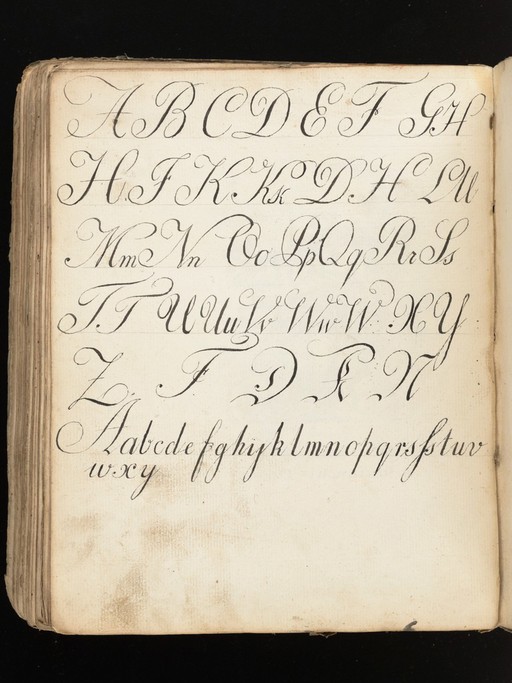 A B C D E F G H
H F K K k D H L M
M m N n O o P p Q q R r S s
T T U U u V v W w W X Y
Z F D K N
A a b c d e f g h i j k l m n o p q r s ſs t u v
w x y